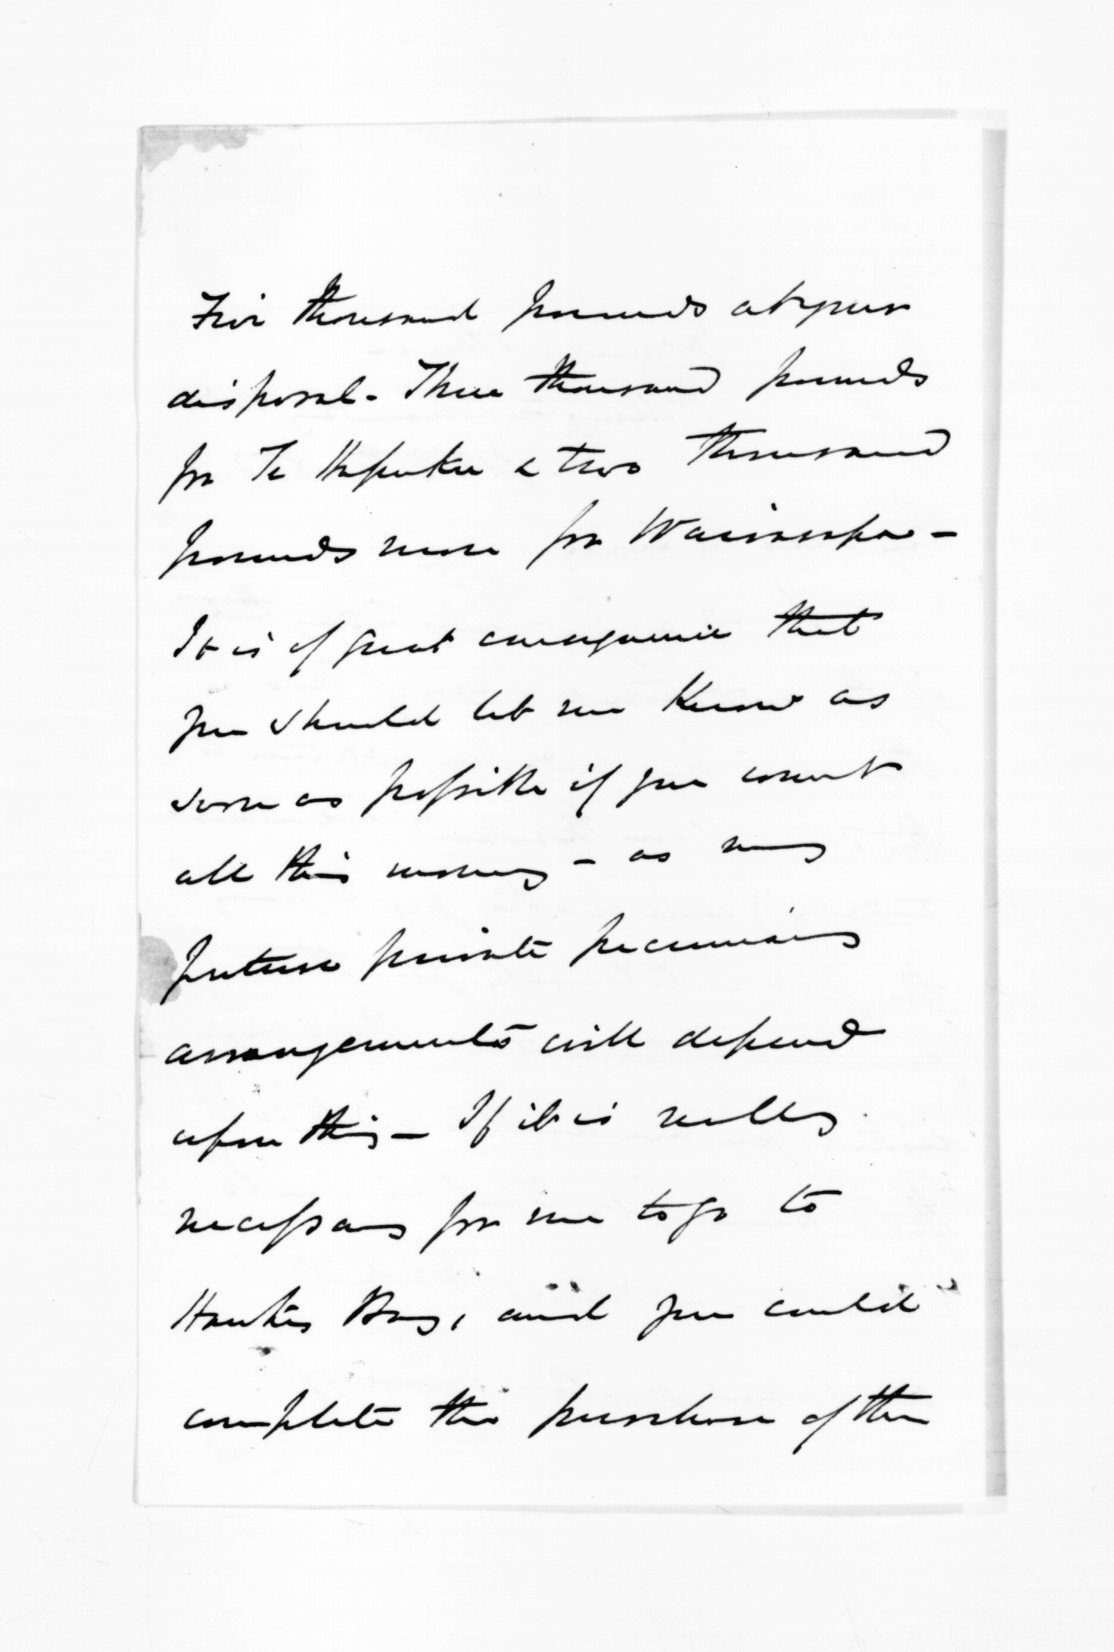 Five thousand pounds at your
disposal. Three thousand pounds
for Te Hapuku & two thousand
pounds more for Wairarapa -
It is of great consequence that
you should let me know as
soon as possible if you want
all this money - as my
future private pecuniary
arrangements will depend
upon this - If it is really
necessary for me to go to
Hawkes Bay, and you could
complete the purchase of the